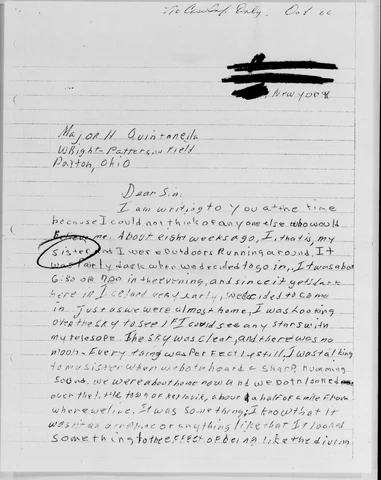 Oct 66
New York
Major H Quintanella
Wright-Patterson Field
Dayton, Ohio
Dear Sir.
I am writing to you at the time
because I could not think of anyone else who would
Believe me. About eight weeks ago, I, that is, my
sister and I were outdoors Running around. It
was fairly dark when we decided to go in. It was about
6:30 or 7:00 in the evening, and since it gets dark
here in Iceland very early, we decided to come
in. Just as we were almost home, I was looking
over the sky to see if I could see any stars with
my telescope. The sky was clear, and there was no
moon. Every thing was perfectly still. I was talking
to my sister when we both heard a sharp, humming
sound. we were about home now and we both looked
over the little town of Keflavik, about a half of a mile from
where we live. It was something; I know that it
wasn't an airplane or anything like that. It looked
something to the effect of being like the diving